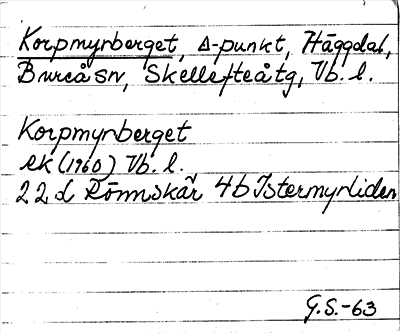 Korpmyrberget, Δ-punkt, Häggdal,
Bureå sn, Skellefteå tg, Vb. l.
Korpmyrberget
ek (1960) Vb. l.
22 L Rönnskär 4b Istermyrliden
G.S.-63